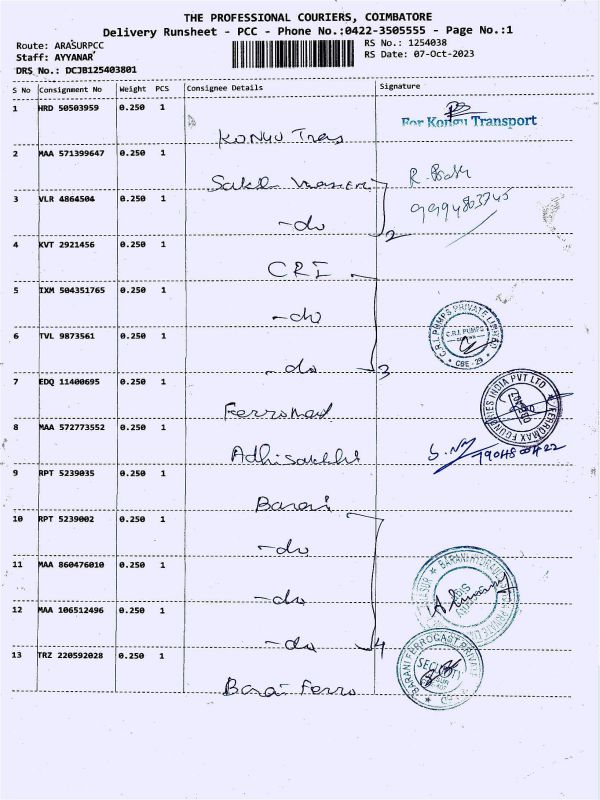 THE PROFESSIONAL COURIERS, COIMBATORE
Delivery Runsheet - PCC - Phone No.:0422-3505555 - Page No.:1
Route: ARASURPCC
RS No.: 1254038
Staff: AYYANAR
RS Date: 07-Oct-2023
DRS No.: DCJB125403801
S No Consignment No Weight PCS Consignee Details Signature
1 HRD 50503959 0.250 1
For Kongu Transport
KONGU Trans
2 MAA 571399647 0.250 1
Sakthi
3 VLR 4864504 0.250 1
-do
2
4 KVT 2921456 0.250 1
CRI
5 IXM 504351765 0.250 1
-do
C.R.I. PUMPS PRIVATE LIMITED
C.R.I. PUMPS
CBE - 29
6 TVL 9873561 0.250 1
-do
3
7 EDQ 11400695 0.250 1
FERROMAX FOUNDRIES INDIA PVT LTD
Ferromax
8 MAA 572773552 0.250 1
Adhisakthi
9 RPT 5239035 0.250 1
Barani
10 RPT 5239002 0.250 1
-do
11 MAA 860476010 0.250 1
BARANI HYDRAULICS
-do
12 MAA 106512496 0.250 1
-do
4
13 TRZ 220592028 0.250 1
BARANI FERROCAST PRIVATE
SECURITY
Barani Ferro